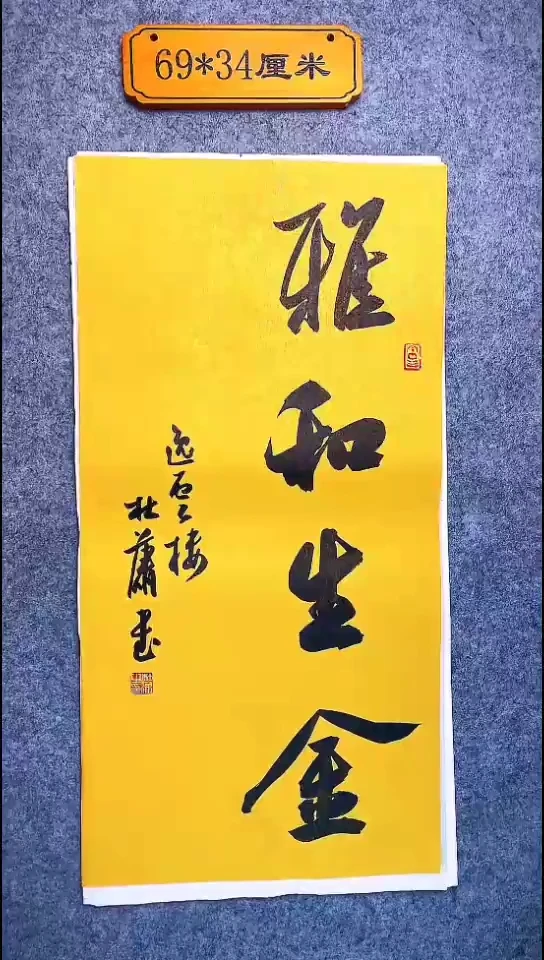 69*34厘米
雅和生金
逸雲楼
杜萧书